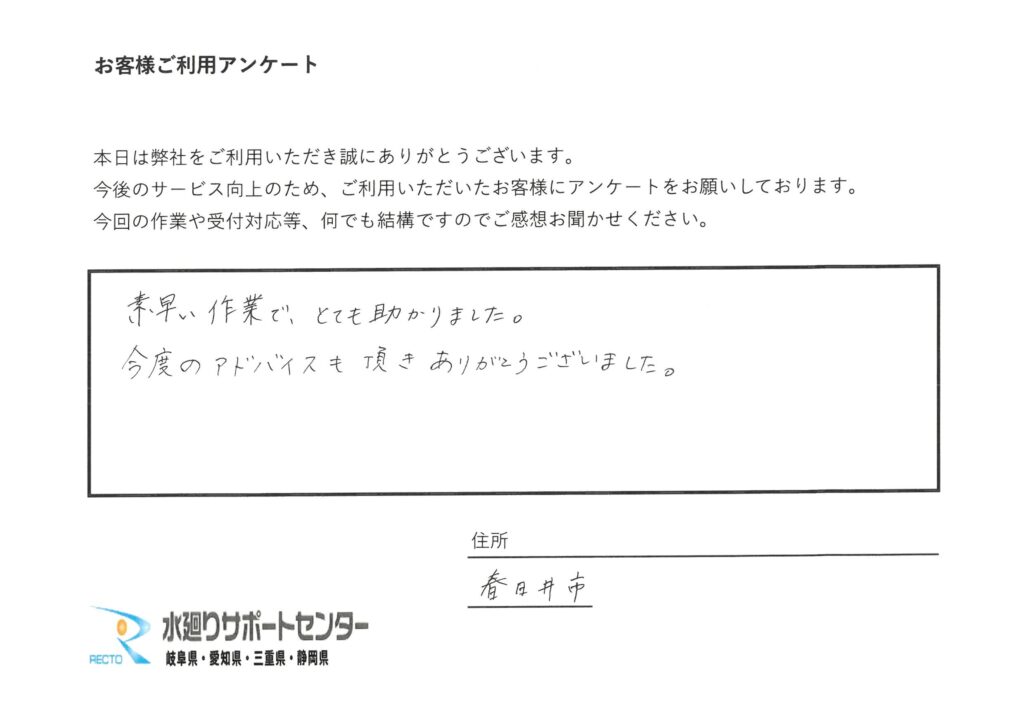 お客様ご利用アンケート
本日は弊社をご利用いただき誠にありがとうございます。
今後のサービス向上のため、ご利用いただいたお客様にアンケートをお願いしております。
今回の作業や受付対応等、何でも結構ですのでご感想お聞かせください。
素早い作業で、とても助かりました。
今度のアドバイスも頂きありがとうございました。
住所
春日井市
水廻りサポートセンター
RECTO
岐阜県・愛知県・三重県・静岡県